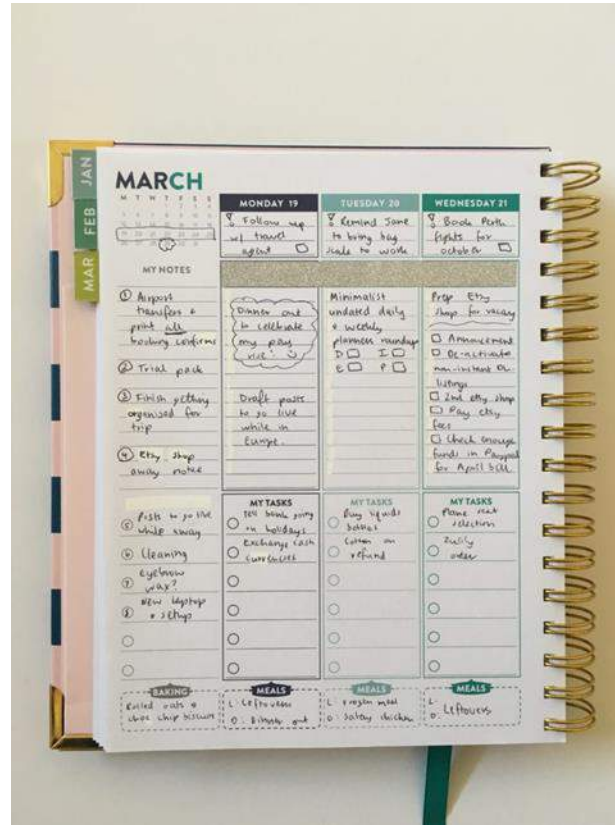 JAN
FEB
MAR
MARCH
M T W T F S S
MY NOTES
① Airport
transfers +
print all
booking confirms
② Trial pack
③ Finish getting
organised for
trip
④ Etsy shop
away notes
⑤ Posts to go live
while away
⑥ Cleaning
⑦ eyebrow
wax?
⑧ New laptop
+ setup
BAKING
Rolled oats +
choc chip biscuits
MONDAY 19
Follow up
w/ travel
agent
Dinner out
to celebrate
my pay
rise!
Draft posts
to go live
while in
Europe.
MY TASKS
Tell bank going
on holidays
Exchange cash
currencies
MEALS
L: Leftovers
D: Dinner out
TUESDAY 20
Remind Jane
to bring bag
scale to work
Minimalist
undated daily
+ weekly
planner roundup
D I
E P
MY TASKS
Buy liquids
bottles
Cotton on
refund
MEALS
L: Frozen meal
D: Satay chicken
WEDNESDAY 21
Book Perth
flights for
october
Prep Etsy
shop for vacay
Announcement
De-activate
non-instant DL
listings
2nd etsy shop
Pay etsy
fees
Check enough
funds in Paypal
for April bill.
MY TASKS
Plane seat
selection
Zulily
order
MEALS
L:
D: Leftovers